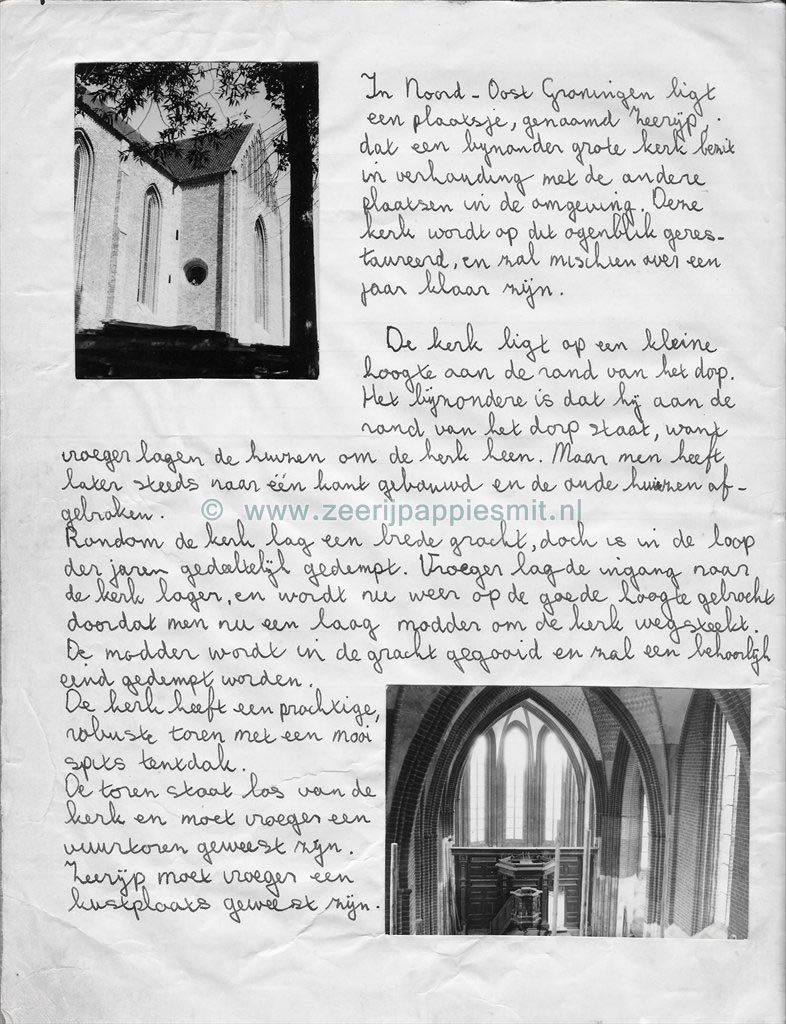 In Noord-Oost Groningen ligt
een plaatsje, genaamd Zeerijp,
dat een byzonder grote kerk bezit
in verhouding met de andere
plaatsen in de omgeving. Deze
kerk wordt op dit ogenblik geres-
taureerd, en zal mischien over een
jaar klaar zijn.
De kerk ligt op een kleine
hoogte aan de rand van het dop.
Het bijzondere is dat hij aan de
rand van het dorp staat, want
vroeger lagen de huizen om de kerk heen. Maar men heeft
later steeds naar één kant gebouwd en de oude huizen af-
gebroken.
© www.zeerijpappiesmit.nl
Rondom de kerk lag een brede gracht, doch is in de loop
der jaren gedeeltelijk gedempt. Vroeger lag de ingang naar
de kerk lager, en wordt nu weer op de goede hoogte gebracht
doordat men nu een laag modder om de kerk wegsteekt.
De modder wordt in de gracht gegooid en zal een behoorlijk
eind gedempt worden.
De kerk heeft een prachtige,
robuste toren met een mooi
spits tentdak.
De toren staat los van de
kerk en moet vroeger een
vuurtoren geweest zijn.
Zeerijp moet vroeger een
kustplaats geweest zijn.